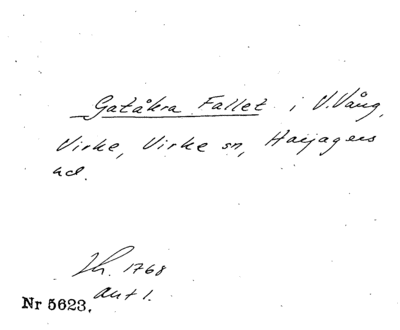 Gatåkra Fallet i V. Vång,
Virke, Virke sn, Harjagers
hd.
Lh. 1768
akt 1.
Nr 5623.